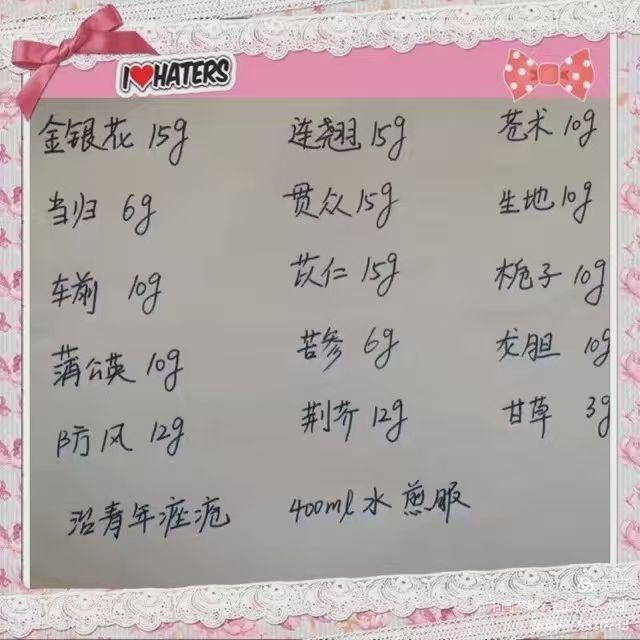 I❤HATERS
金银花 15g 连翘 15g 苍术 10g
当归 6g 贯众 15g 生地 10g
车前 10g 苡仁 15g 栀子 10g
蒲公英 10g 苦参 6g 龙胆 10g
防风 12g 荆芥 12g 甘草 3g
治青年痤疮 400ml 水煎服